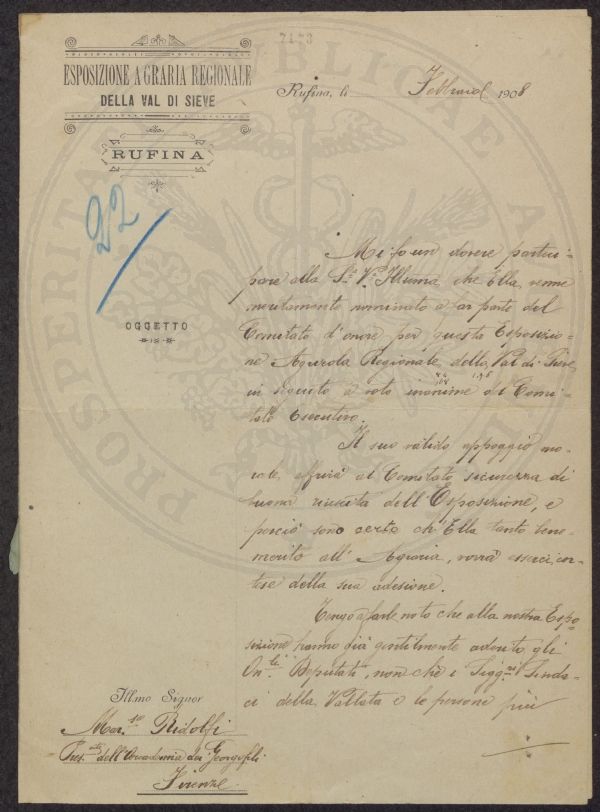 7173
ESPOSIZIONE AGRARIA REGIONALE
DELLA VAL DI SIEVE
RUFINA
Rufina, li Febbraio 1908
22
OGGETTO
Mi fo un dovere parteci-
pare alla S.a V.a Illuma, che Ella, venne
meritamente nominato a far parte del
Comitato d'onore per questa Esposizio-
ne Agricola Regionale della Val di Sieve,
in seguito a voto unanime del Comi-
tato Esecutivo.
Il suo valido appoggio mo-
rale, offrirà al Comitato sicurezza di
buona riuscita dell'Esposizione, e
perciò sono certo ch'Ella tanto bene-
merito all'Agraria, vorrà esserci cor-
tese della sua adesione.
Tengo a farle noto che alla nostra Espo-
sizione hanno già gentilmente aderito gli
On.li Deputati, non che i Sigg.ri Sinda-
ci della Vallata e le persone più
Illmo Signor
Mar.se Ridolfi
Pres.te dell'Accademia dei Georgofili
Firenze
PROSPERITATI PUBLICAE AU